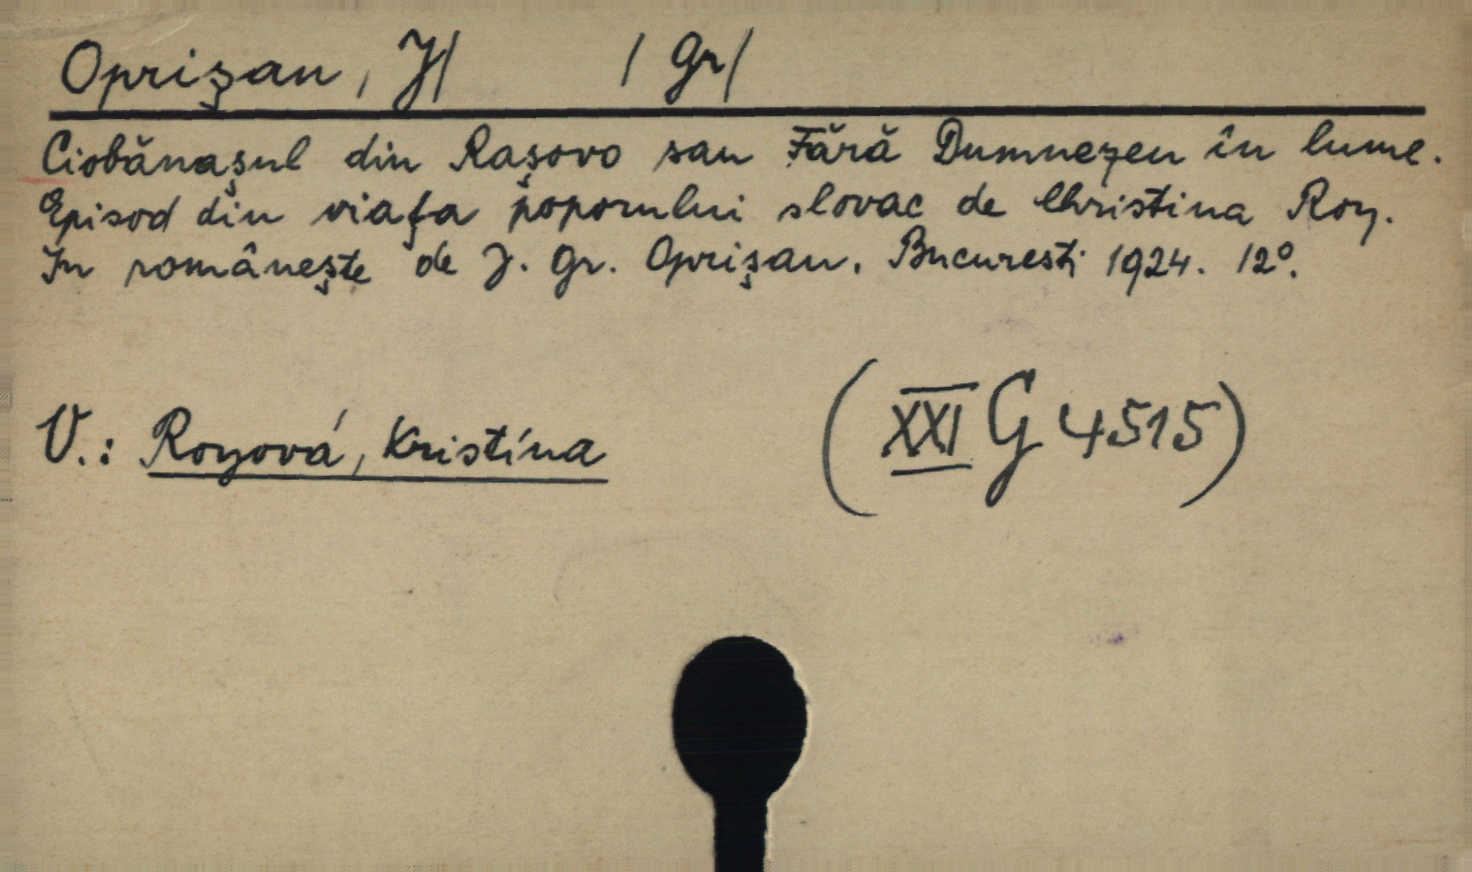 Oprişan, J/ /Gr/
Ciobănaşul din Raşovo sau Fără Dumnezeu în lume.
Episod din viaţa poporului slovac de Christina Roy.
In româneşte de J. Gr. Oprişan. Bucuresti 1924. 12º.
V.: Royová, Kristína (XXI G 4515)